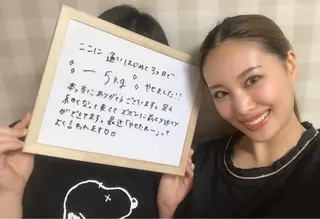 ここに通いはじめて3ヶ月で
－5kg やせました!!
本当にありがとうございます。足も
長くなって来て ズボンに
ができてます。最近「やせたねー」って
よく言われます